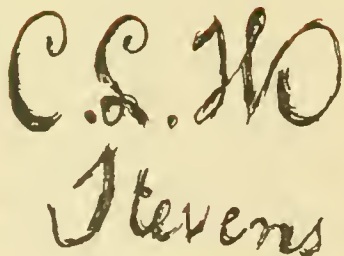 C.L.HO
Stevens